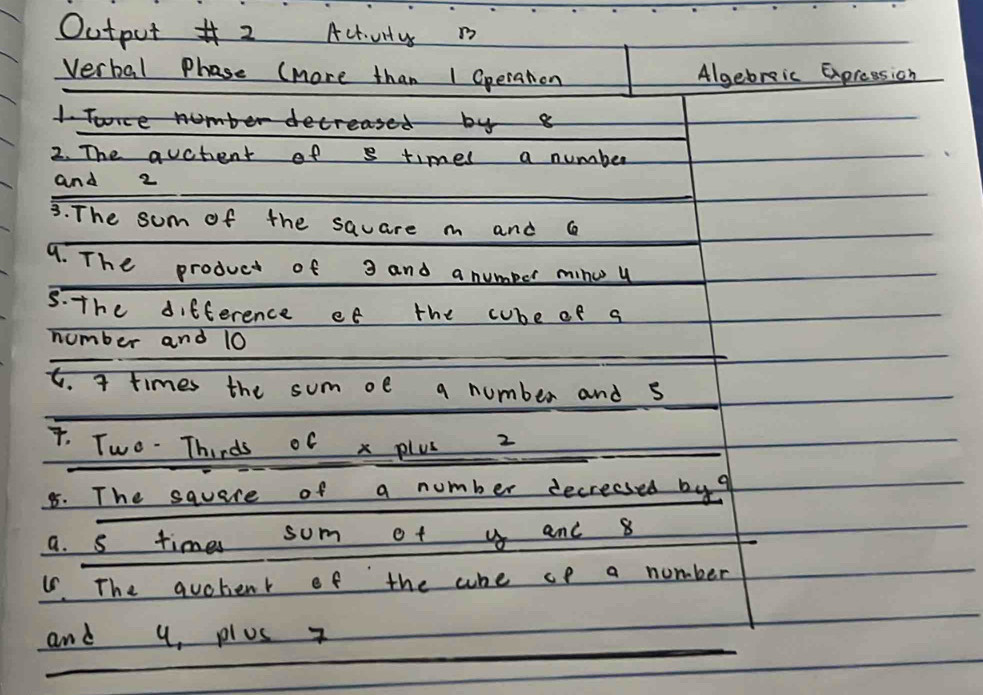 Output # 2 Activity B
Verbal Phase (More than 1 Operation Algebraic Expression
1. Twice number decreased by 8
2. The quotient of 5 times a number
and 2
3. The sum of the square m and 6
4. The product of 3 and a number minus 4
5. The difference of the cube of a
number and 10
6. 7 times the sum of a number and 5
7. Two-Thirds of x plus 2
8. The square of a number decreased by 9
9. 5 times sum of y and 8
10. The quotient of the cube of a number
and 4, plus 7